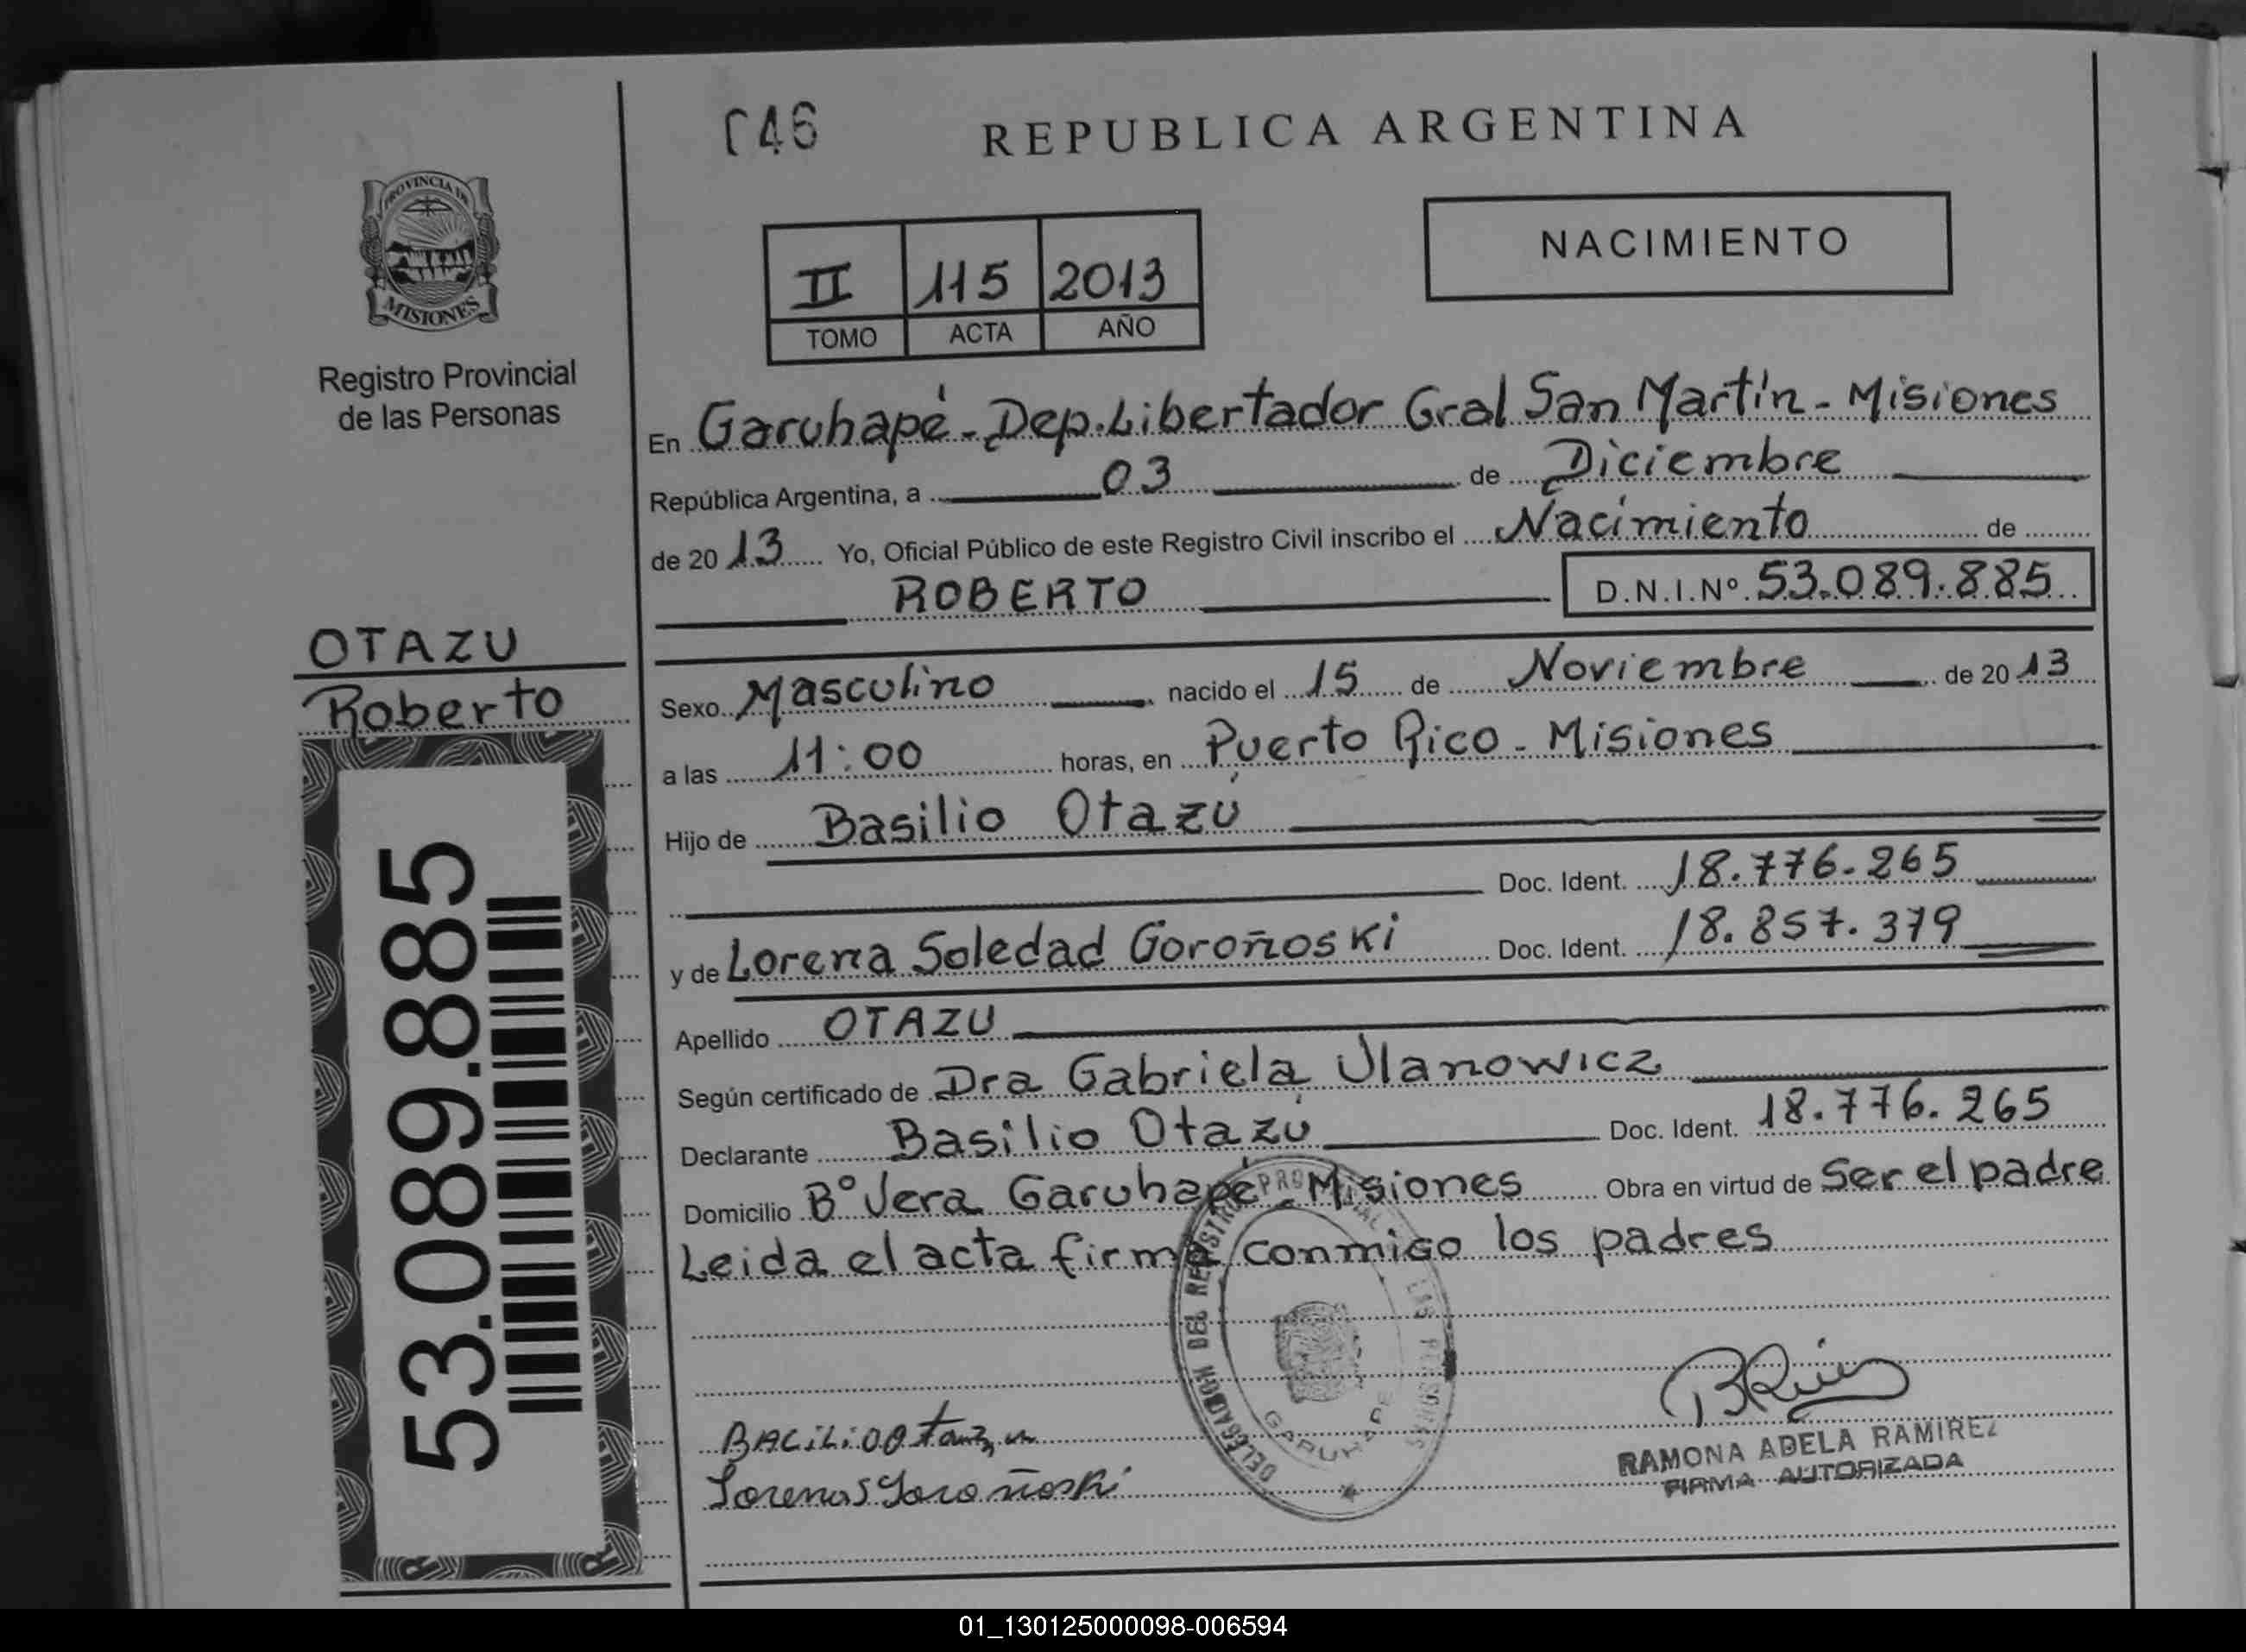 046
REPUBLICA ARGENTINA
PROVINCIA DE
MISIONES
Registro Provincial
de las Personas
NACIMIENTO
II 115 2013
TOMO ACTA AÑO
En Garuhapé - Dep. Libertador Gral San Martín - Misiones
República Argentina, a 03 de Diciembre
de 20 13 Yo, Oficial Público de este Registro Civil inscribo el Nacimiento de
ROBERTO D.N.I.Nº 53.089.885
OTAZU
Roberto
53.089.885
Sexo Masculino nacido el 15 de Noviembre de 20 13
a las 11:00 horas, en Puerto Rico - Misiones
Hijo de Basilio Otazú
Doc. Ident. 18.776.265
y de Lorena Soledad Goroñoski Doc. Ident. 18.857.379
Apellido OTAZU
Según certificado de Dra Gabriela Ulanowicz
Declarante Basilio Otazú Doc. Ident. 18.776.265
Domicilio Bº Vera Garuhapé - Misiones Obra en virtud de Ser el padre
Leida el acta firma conmigo los padres
DELEGACION DEL REGISTRO PROVINCIAL LAS PERSONAS
GARUHAPE
BACiLiO Otazu
Lorena S Goroñoski
RAMONA ADELA RAMIREZ
FIRMA AUTORIZADA
01_130125000098-006594